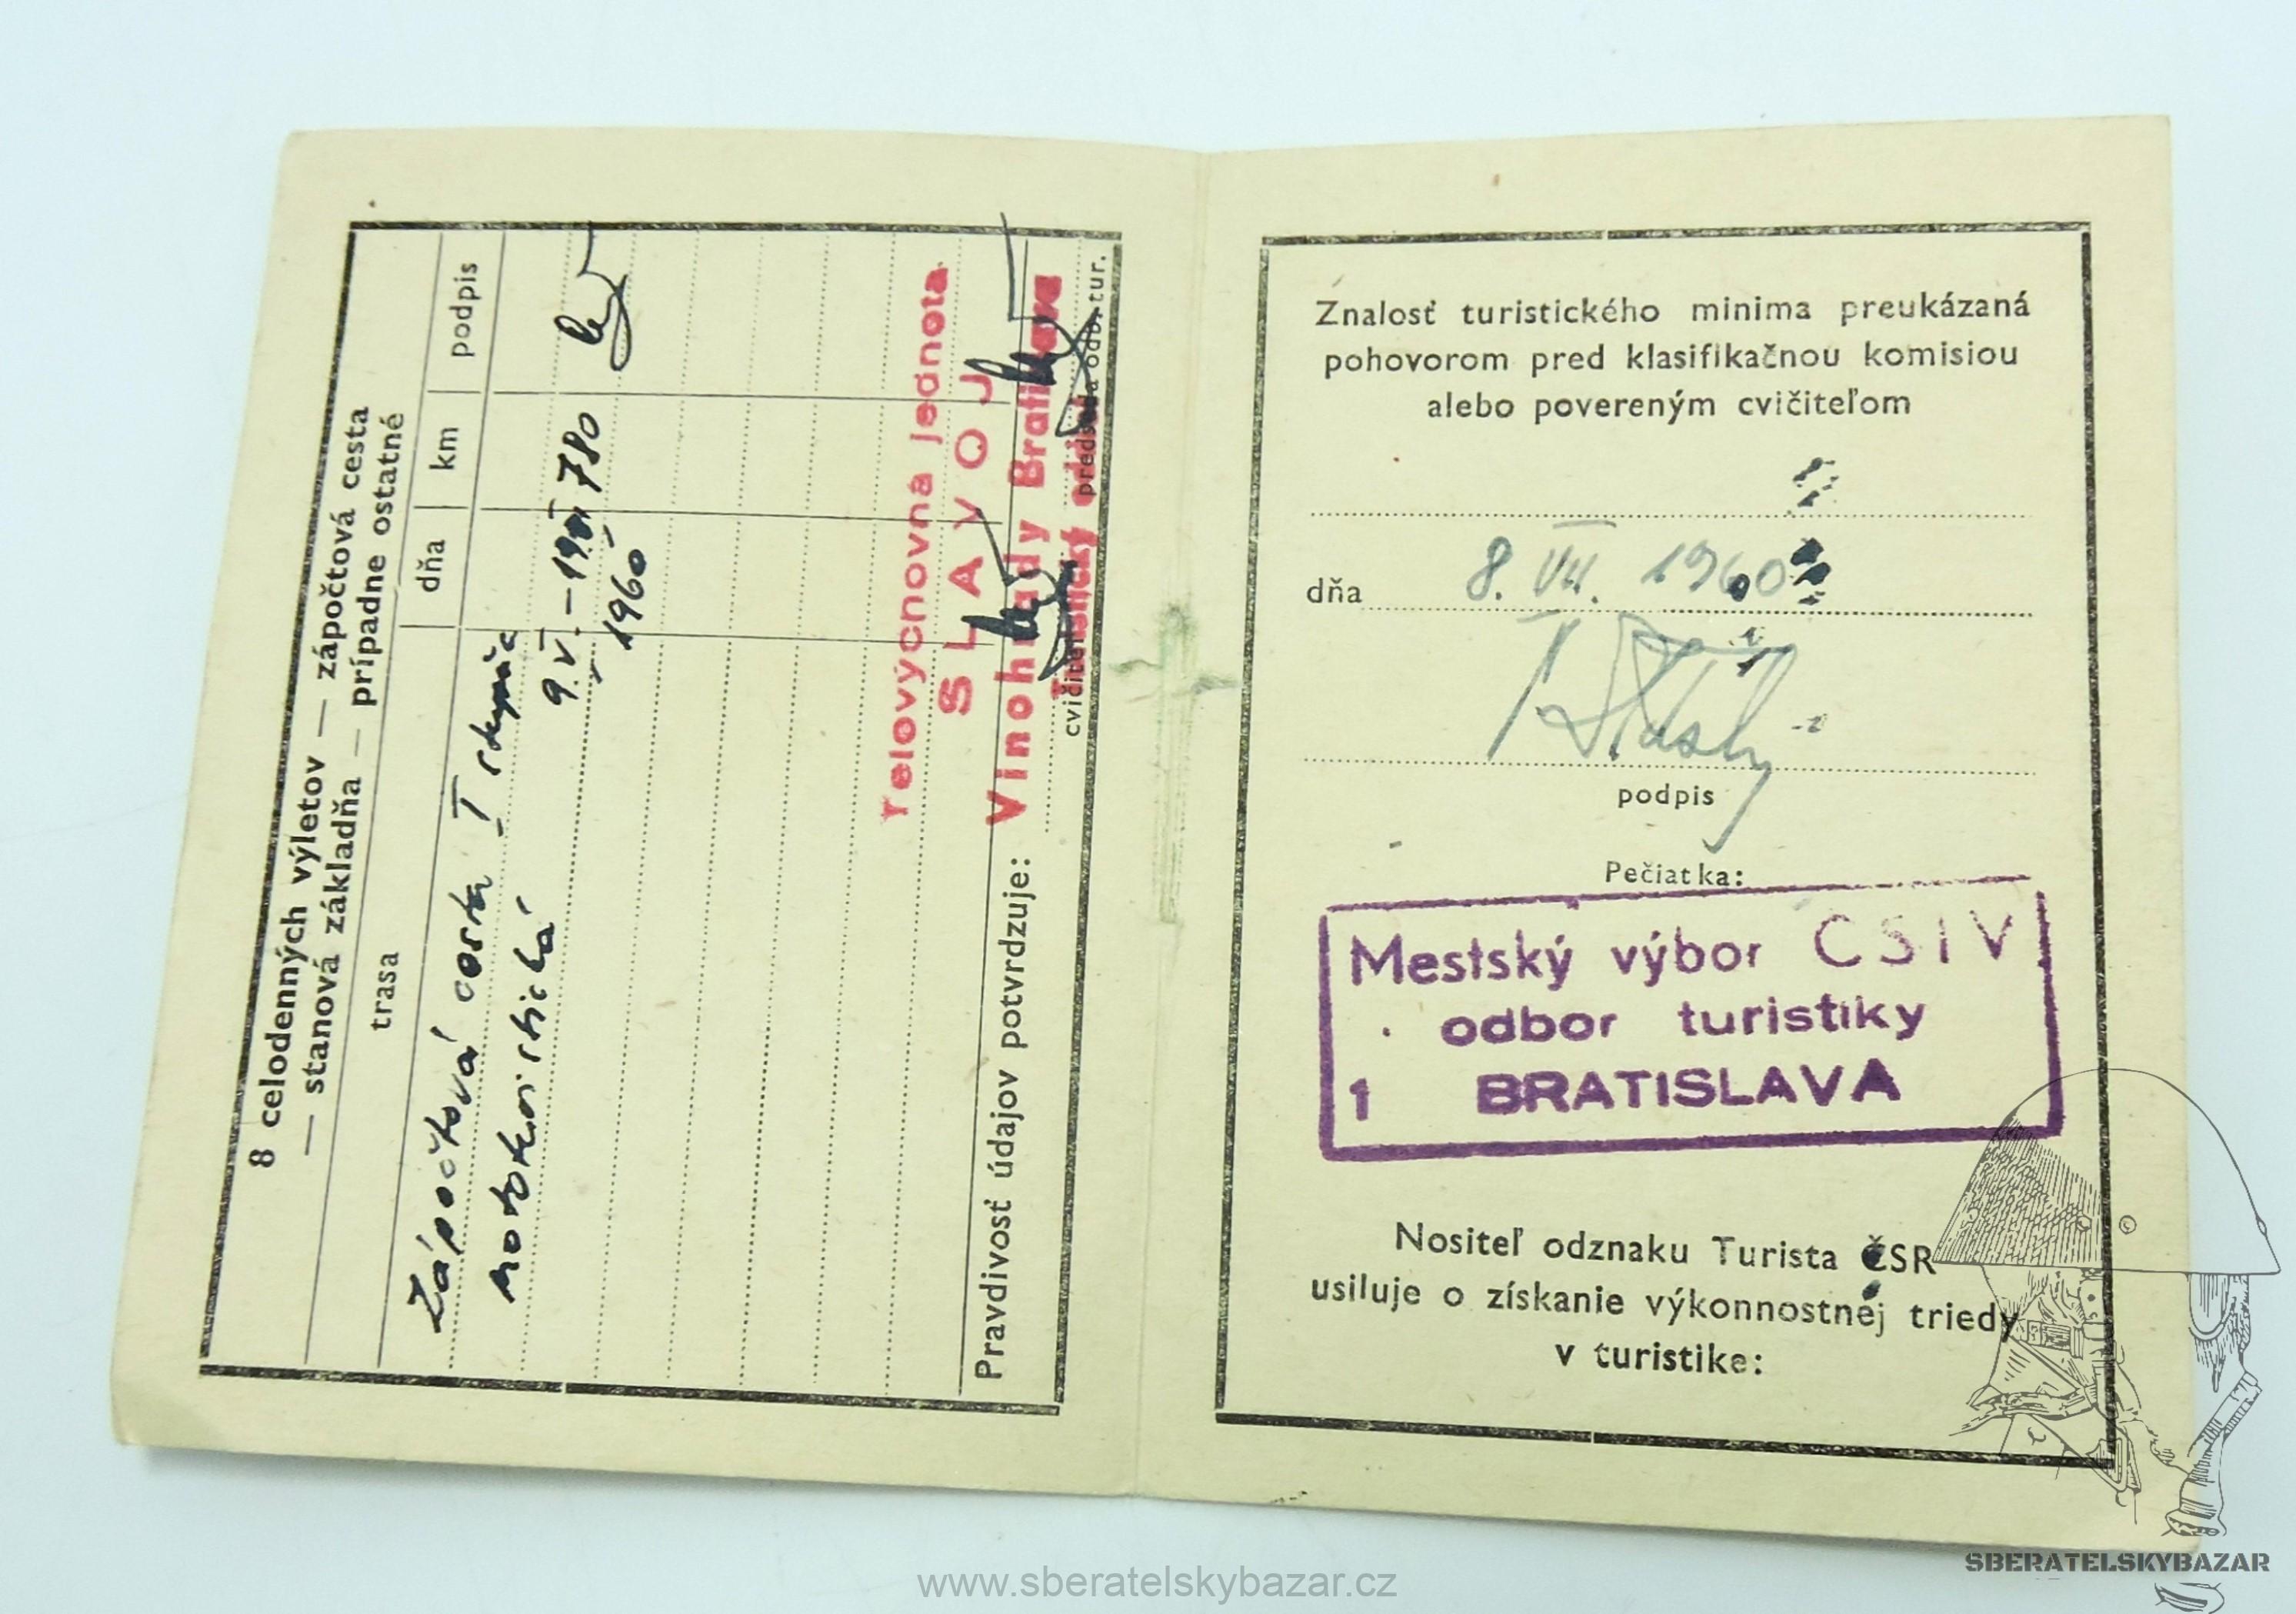 8 celodenných výletov — zápočtová cesta
— stanová základňa — prípadne ostatné
trasa dňa km podpis
Zápočtová cesta I skupina
motoristická 9.V. – 780
1960
Pravdivosť údajov potvrdzuje:
Telovýcnovna jednota
SLAVOJ
Vinohrady Bratislava
Turistický oddiel
cvičiteľ predseda odb. tur.
Znalosť turistického minima preukázaná
pohovorom pred klasifikačnou komisiou
alebo povereným cvičiteľom
dňa 8. VII. 1960
podpis
Pečiatka:
Mestský výbor ČSTV
odbor turistiky
1 BRATISLAVA
Nositeľ odznaku Turista ČSR
usiluje o získanie výkonnostnej triedy
v turistike:
www.sberatelskybazar.cz
SBERATELSKYBAZAR